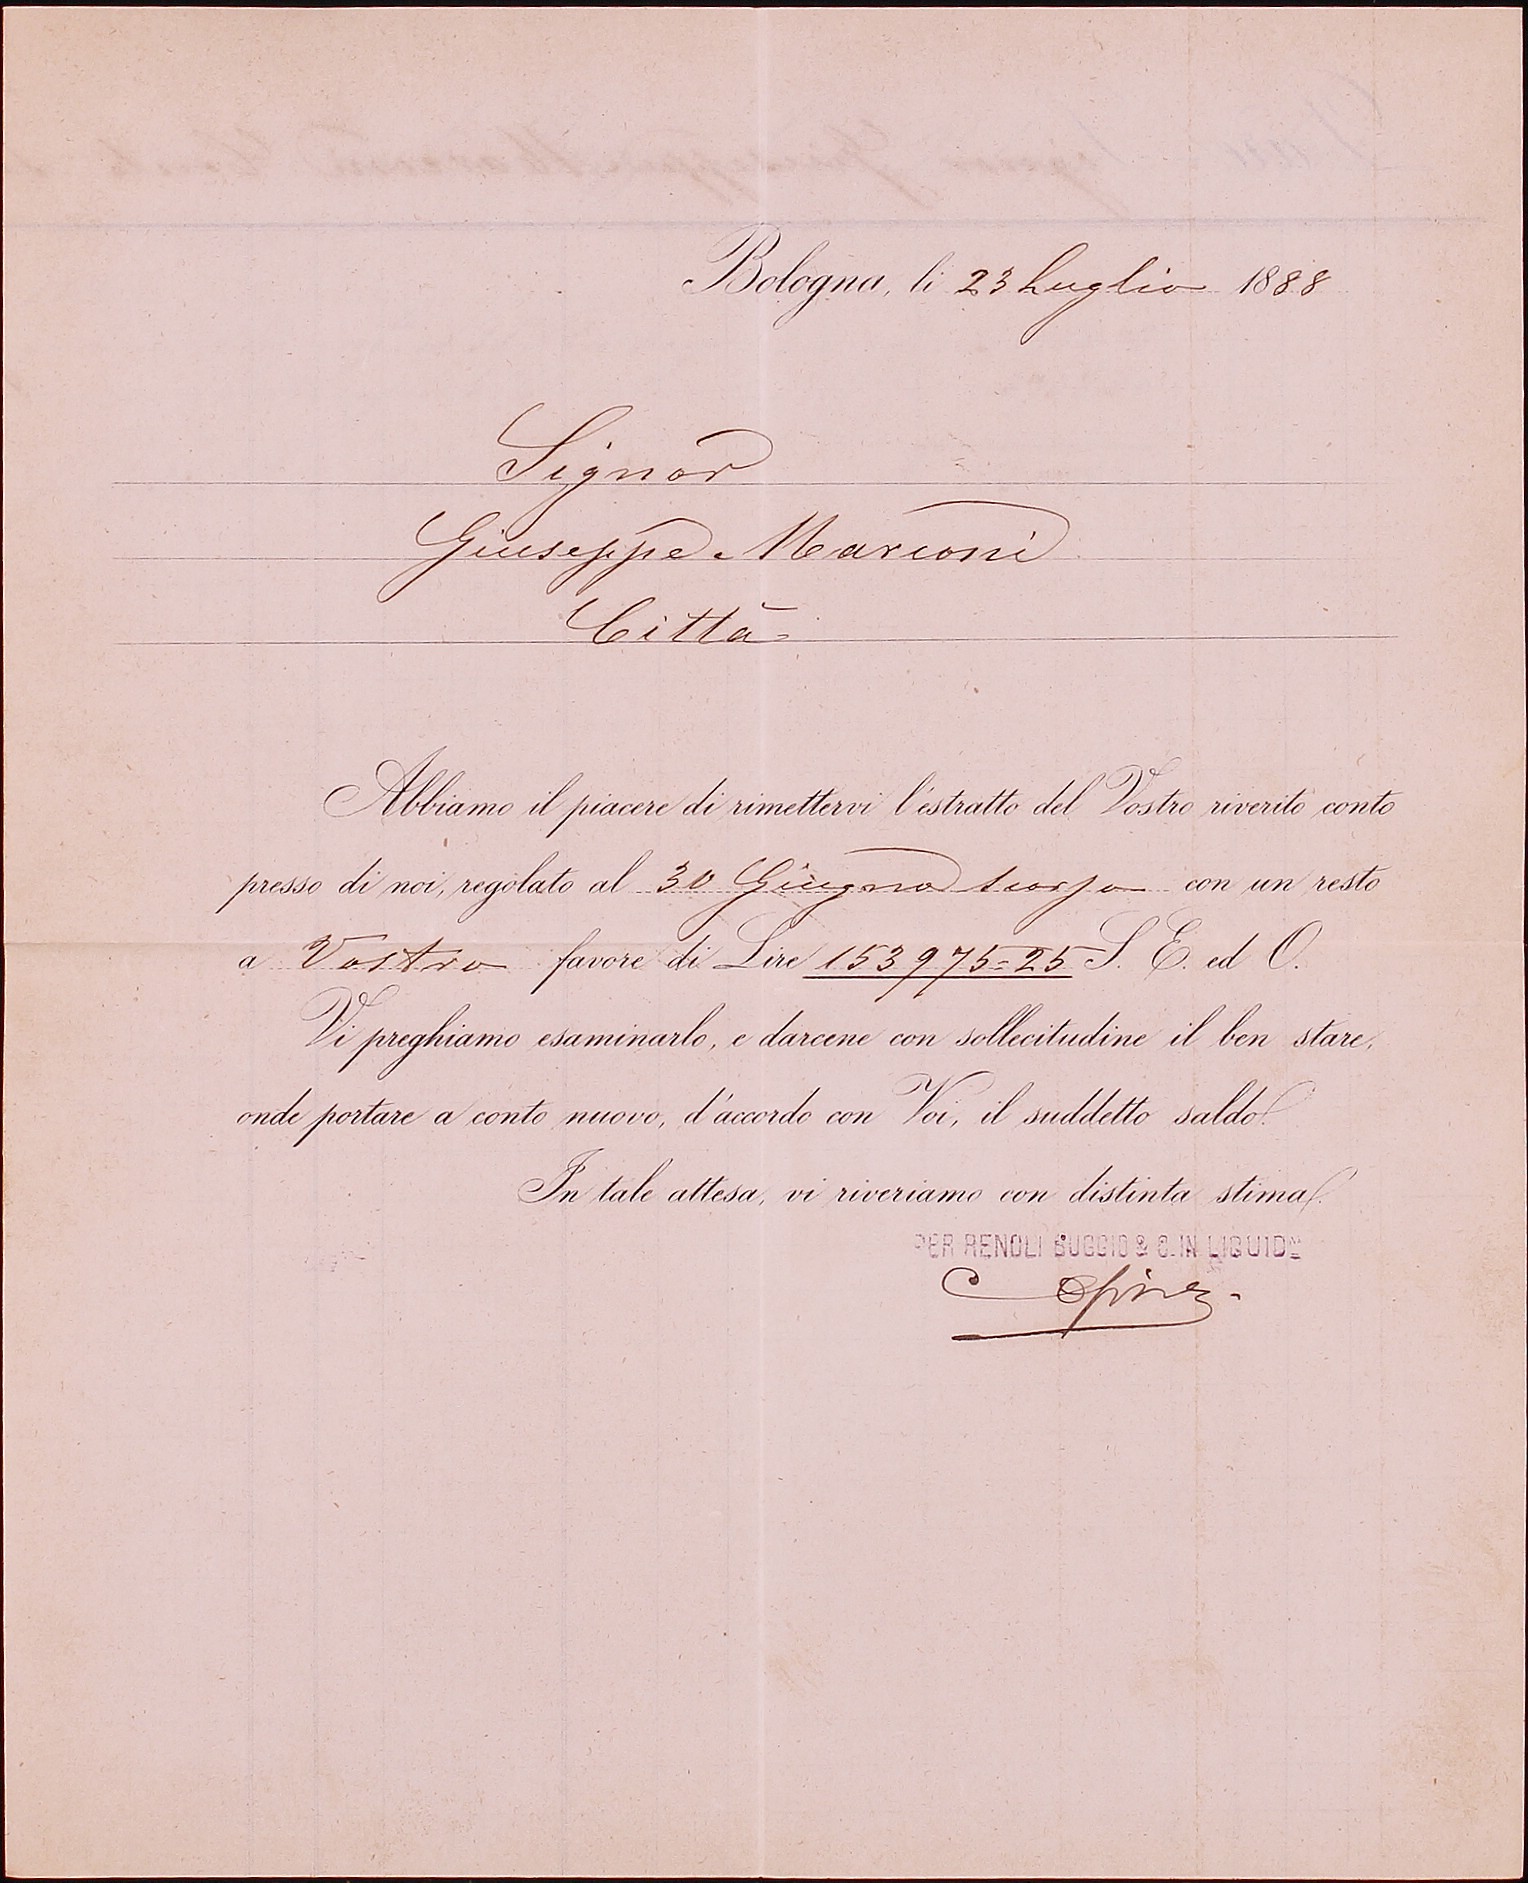 Bologna, li 23 Luglio 1888
Signor
Giuseppe Marconi
Città
Abbiamo il piacere di rimettervi l'estratto del Vostro riverito conto
presso di noi, regolato al 30 Giugno scorso con un resto
a Vostro favore di Lire 153975=25 S. E. ed O.
Vi preghiamo esaminarlo, e darcene con sollecitudine il ben stare,
onde portare a conto nuovo, d'accordo con Voi, il suddetto saldo.
In tale attesa, vi riveriamo con distinta stima.
PER RENOLI BUGGIO & C. IN LIQUIDE